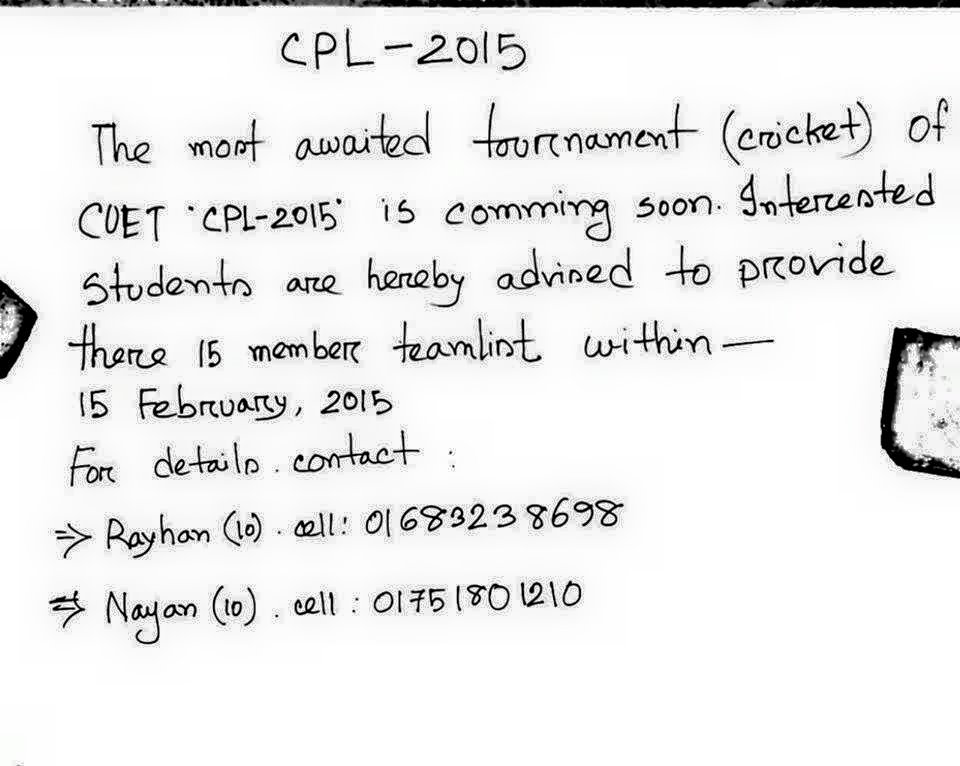 CPL-2015
The most awaited tournament (cricket) of
CUET 'CPL-2015' is comming soon. Interested
students are hereby advised to provide
there 15 member teamlist within —
15 February, 2015
For details. contact :
⇒ Rayhan (10). cell: 01683238698
⇒ Nayan (10). cell : 01751801210